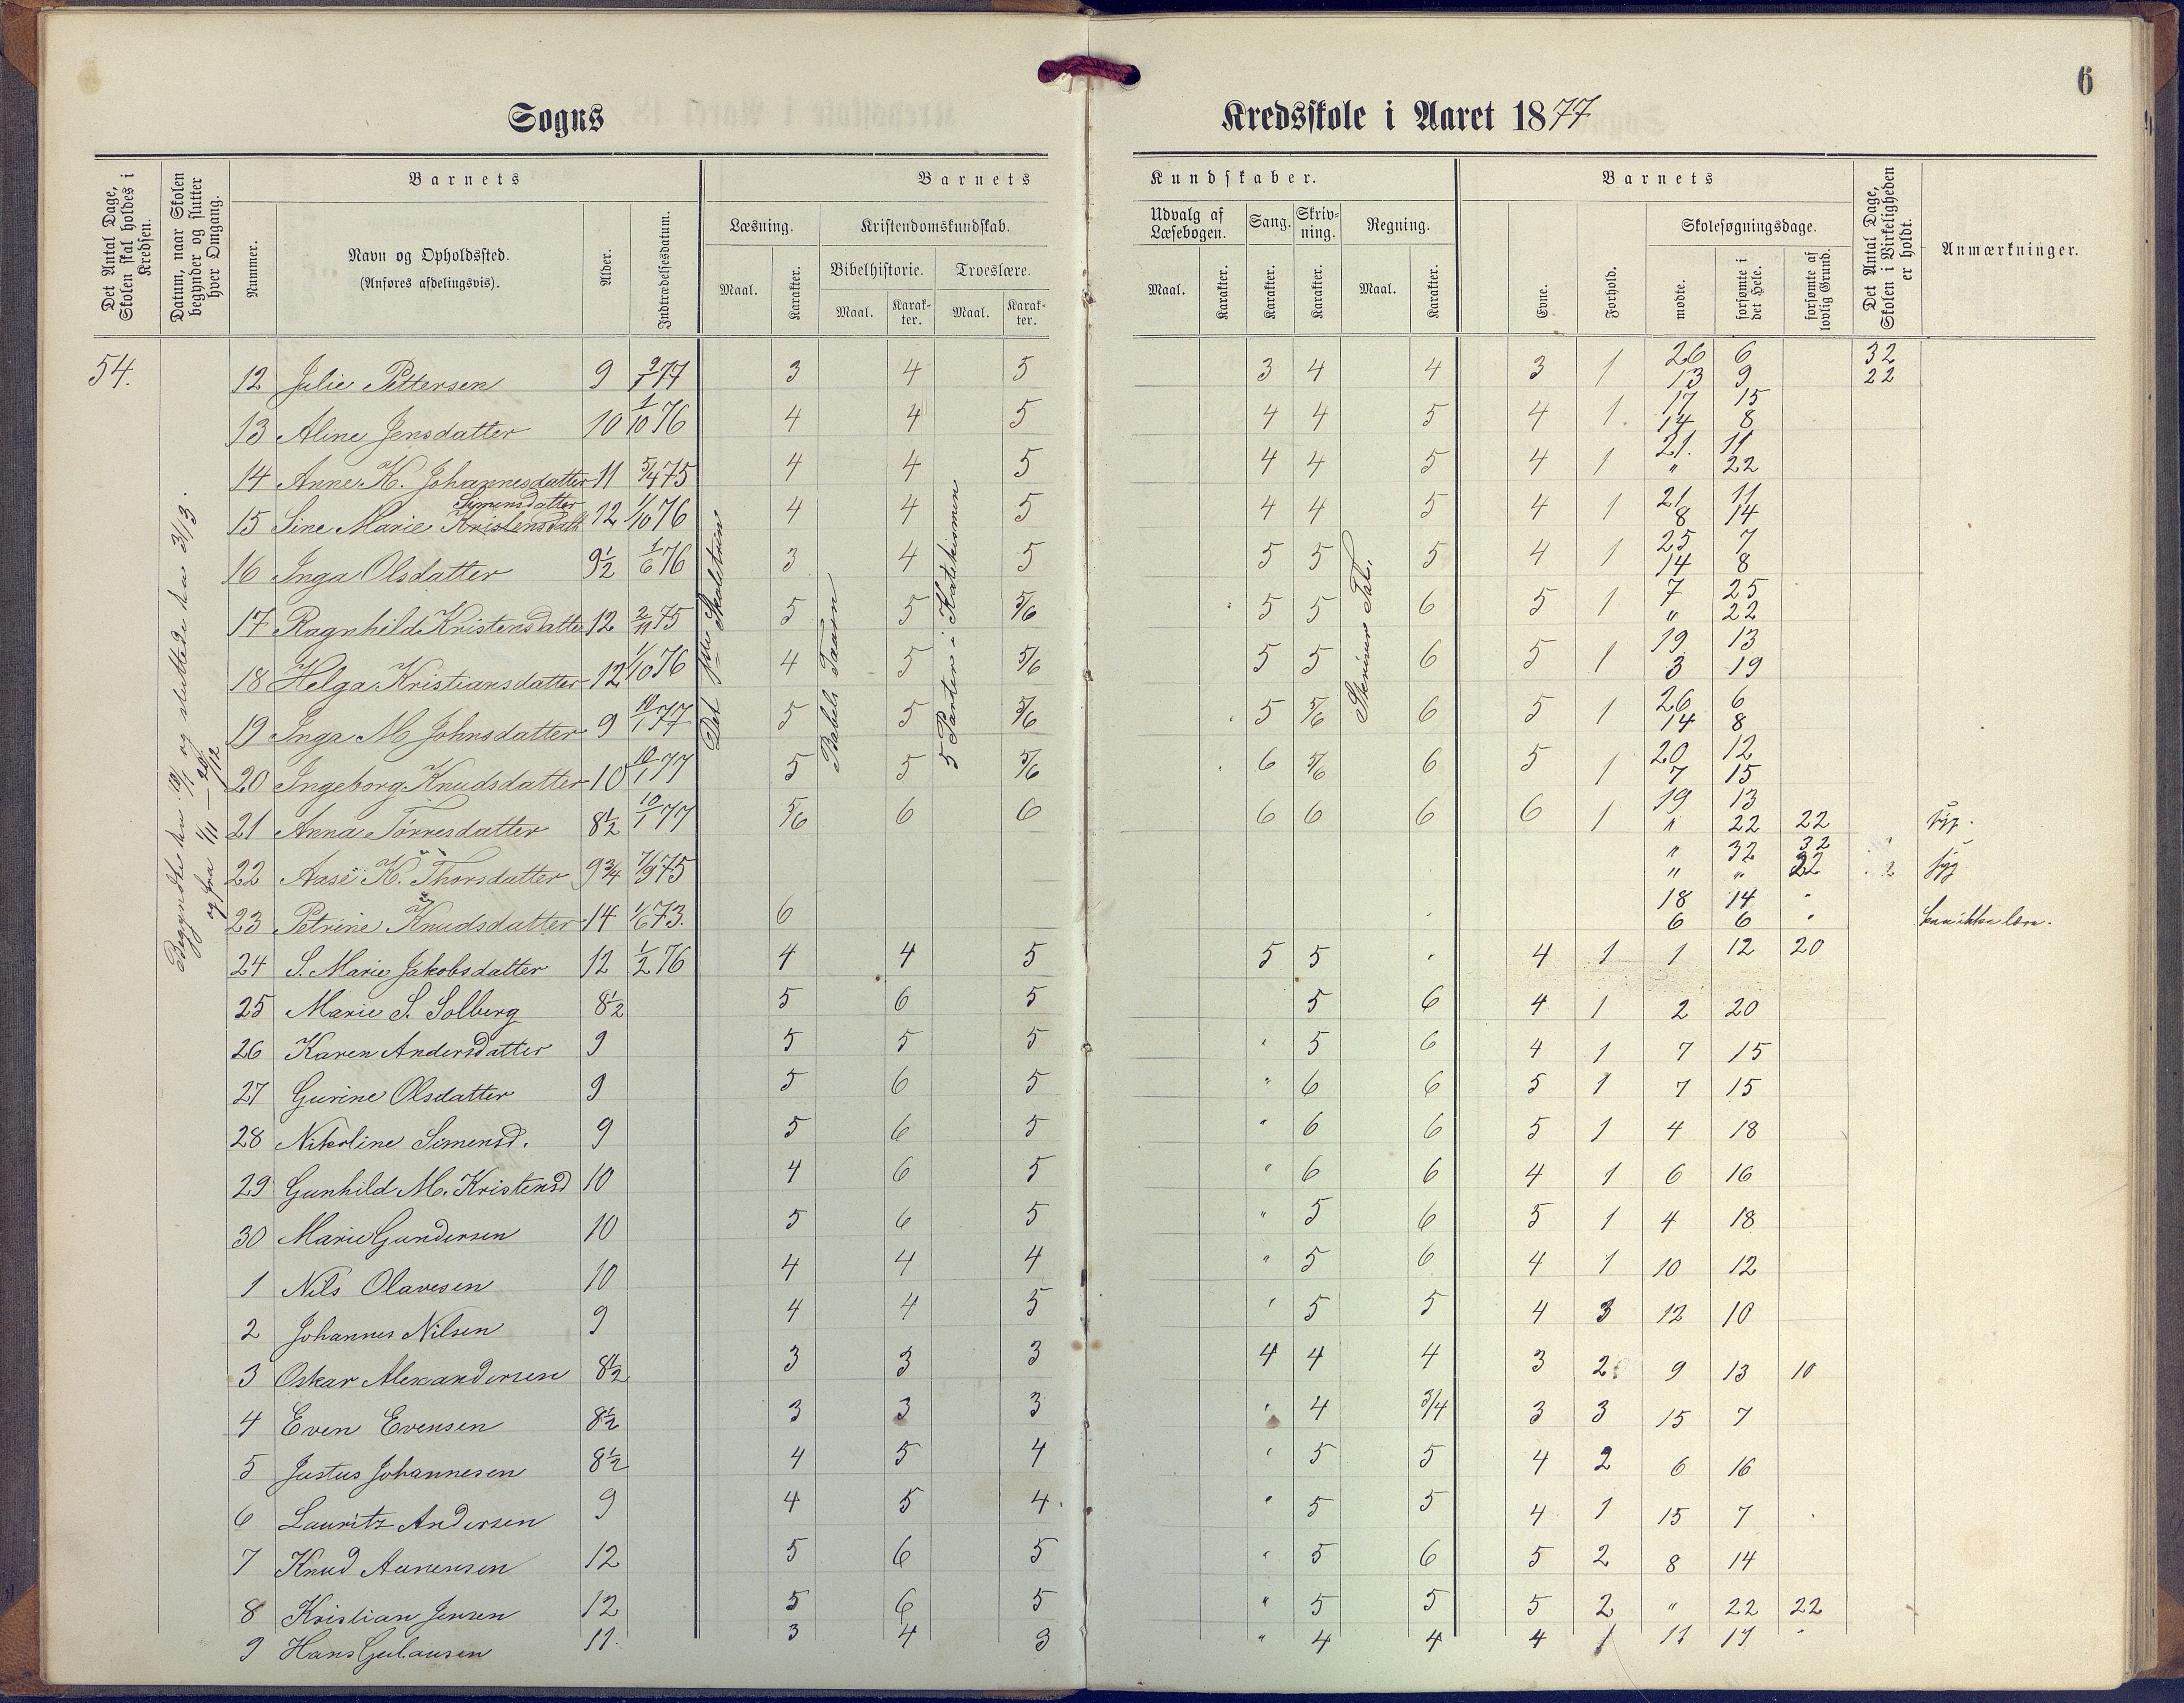 6
Sogns Kredsskole i Aaret 1877
Det Antal Dage, Skolen skal holdes i Kredsen.
Datum, naar Skolen begynder og slutter hver Omgang.
Barnets
Nummer.
Navn og Opholdssted.
(Anføres afdelingsvis).
Alder.
Indtrædelsesdatum.
Barnets Kundskaber.
Læsning.
Maal.
Karakter.
Kristendomskundskab.
Bibelhistorie.
Maal.
Karakter.
Troeslære.
Maal.
Karakter.
Udvalg af Læsebogen.
Maal.
Karakter.
Sang.
Karakter.
Skrivning.
Karakter.
Regning.
Maal.
Karakter.
Barnets
Evne.
Forhold.
Skolesøgningsdage.
mødte.
forsømte i det Hele.
forsømte af lovlig Grund.
Det Antal Dage, Skolen i Virkeligheden er holdt.
Anmærkninger.
54.
Begyndte den 10/1 og sluttede den 3/13.
og fra 1/11 — 20/12
Babels Taarn
5 Parter i Katekismen
12 Julie Pettersen 9 9/1 77 3 4 5 3 4 4 3 1 26 6 32
13 9 22
13 Aline Jensdatter 10 1/10 76 4 4 5 4 4 5 4 1. 17 15
14 8
14 Anne K. Johannesdatter 11 5/4 75 4 4 5 4 4 5 4 1 21. 11
" 22
Simensdatter
15 Sine Marie Kristensdatt 12 1/10 76 4 4 5 4 4 5 4 1 21 11
8 14
16 Inga Olsdatter 9½ 1/6 76 3 4 5 5 5 5 4 1 25 7
14 8
17 Ragnhild Kristensdatter 12 2/11 75 5 5 5/6 5 5 6 5 1 7 25
" 22
18 Helga Kristiansdatter 12 1/10 76 4 5 5/6 5 5 6 5 1 19 13
3 19
19 Inga M Johnsdatter 9 10/1 77 5 5 5/6 5 5/6 6 5 1 26 6
14 8
20 Ingeborg Knudsdatter 10 10/1 77 5 5 5/6 6 5/6 6 5 1 20 12
7 15
21 Anna Tørresdatter 8½ 10/1 77 5/6 6 6 6 6 6 6 1 19 13
" 22 22 syg.
22 Aase K. Thorsdatter 9¾ 7/9 75 " 32 32
" " 22 syg
23 Petrine Knudsdatter 14 1/6 73. 6 18 14 "
6 6 " kan ikke lære.
24 S. Marie Jakobsdatter 12 1/2 76 4 4 5 5 5 4 1 1 12 20
25 Marie S. Solberg 8½ 5 6 5 5 6 4 1 2 20
26 Karen Andersdatter 9 5 5 5 " 5 6 4 1 7 15
27 Gurine Olsdatter 9 5 6 5 " 6 6 5 1 7 15
28 Nikoline Simensd. 9 5 6 5 " 6 6 5 1 4 18
29 Gunhild M. Kristensd 10 4 6 5 " 6 6 4 1 6 16
30 Marie Gundersen 10 5 6 5 " 5 6 5 1 4 18
1 Nils Olavesen 10 4 4 4 " 5 6 4 1 10 12
2 Johannes Nilsen 9 4 4 5 " 5 5 4 3 12 10
3 Oskar Alexandersen 8½ 3 3 3 4 4 4 3 2 9 13 10
4 Even Evensen 8½ 3 3 3 " 4 3/4 3 3 15 7
5 Justus Johannesen 8½ 4 5 4 " 5 5 4 2 6 16
6 Lauritz Andersen 9 4 5 4. " 5 5 4 1 15 7
7 Knud Aanensen 12 5 6 5 " 5 6 5 2 8 14
8 Kristian Jensen 12 5 6 5 " 5 5 5 2 " 22 22
9 Hans Gulausen 11. 3 4 3 " 4 4 4 1 11 11 "